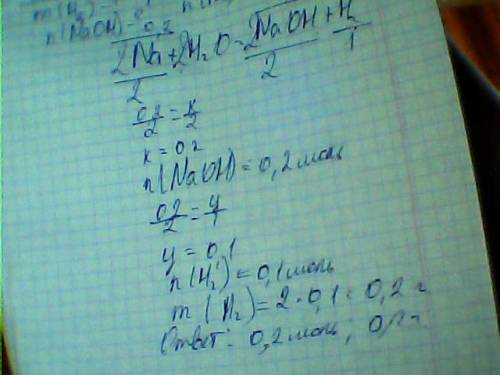 m(H₂)
n(NaOH) = 0,2
2Na + 2H₂O = 2NaOH + H₂
2 2 1
0,2/2 = x/2
x = 0,2
n(NaOH) = 0,2 моль
0,2/2 = y/1
y = 0,1
n(H₂) = 0,1 моль
m(H₂) = 2 · 0,1 = 0,2 г
Ответ: 0,2 моль; 0,2 г